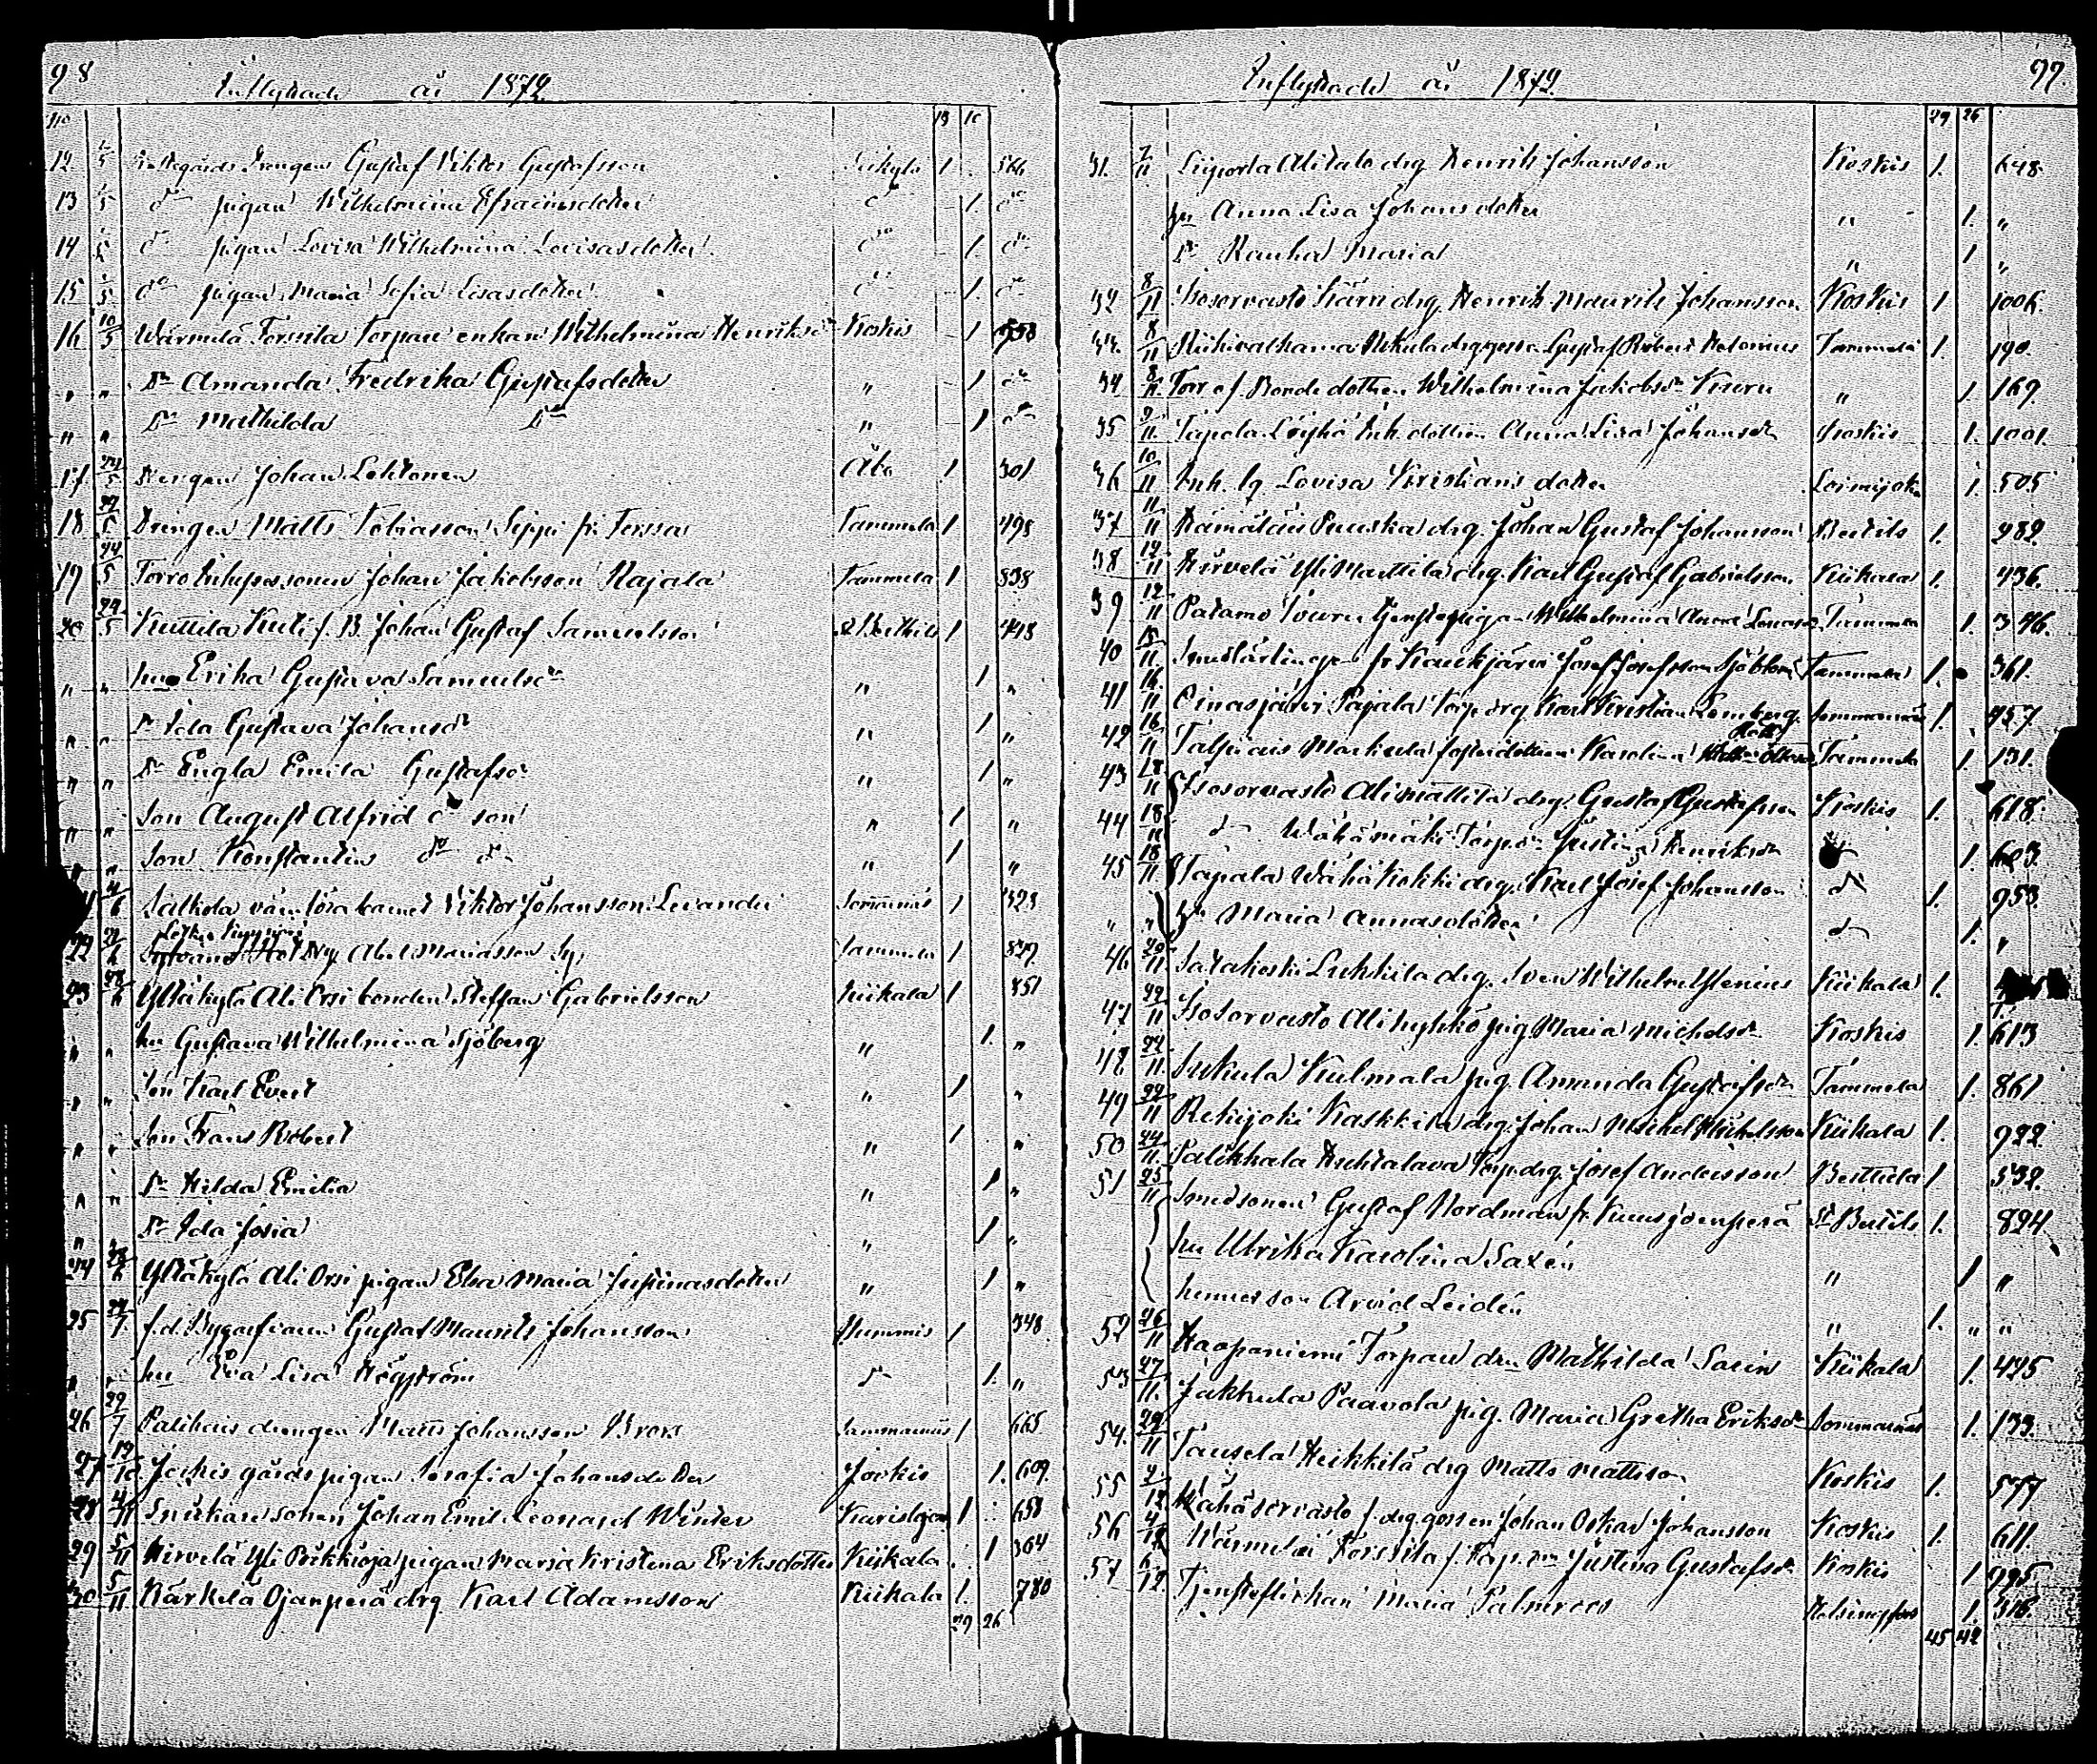 98 Inflyttade år 1872
No 13 10
12. 5 drengen Gustaf Viktor Gustafsson 1 566
13 5 do pigan Wilhelmina Efraimsdotter do 1. do
14 5 do pigan Lovisa Wilhelmina Lovisasdotter do 1 do
15 5 do pigan Maria Sofia Lisasdotter do 1. do
16 10/5 Wärmilä Forssila Torpare enkan Wilhelmina Henriksdr Koskis 1 558
" " Dr Amanda Fredrika Gustafsdotter " 1 do
" " Dr Mathilda Do " 1 do
17 24/5 Johan Lehtonen Åbo 1 301
18 5 Drengen Matts Tobiasson Seppi fr. Forssa Tammela 1 498
19 24/5 Torro Inhysessonen Johan Jakobsson Rajala Tammela 1 838
20 29/5 Kuttila Kuti f. B. Johan Gustaf Samuelsson St Bertils 1 448
" " hu Erika Gustava Samuelsdr " 1 "
" " Dr Ida Gustava Johansdr " 1 "
" " Dr Engla Emilia Gustafsdr " 1 "
" " Son August Alfrid do son " 1 "
" " Son Konstantin do do " 1 "
4/6 Salkola Viktor Johansson Levander Somernäs 1 323
22 Abel Mariasson Tammela 1
23 28/6 Yltäkylä Ali Orsi bonden Steffan Gabrielsson Kiikala 1 851
" " hu Gustava Wilhelmina Sjöberg " 1. "
" " Son Karl Evert " 1 "
" " Son Frans Robert " 1 "
" " Dr Hilda Emilia " 1 "
" " Dr Ida Sofia " 1 "
24 28/6 Yltäkylä Ali Orsi pigan Eva Maria Justinasdotter " 1 "
25 7 f.d. Gustaf Maurits Johansson 1 348.
" " hu Eva Lisa Högström do 1. "
26 29/7 Palikais drengen Matts Johansson Brors Sommarnäs 1 665
27 19/10 Jockis gårds pigan Serafia Johansdotter Jockis 1. 609.
28 4/11 Johan Emil Leonard Winter Karislojo 1 658
29 5/11 Hirvelä Yli Pörkkiöja pigan Maria Kristina Eriksdotter Kiikala 1 364
30 5/11 Kärkelä Ojanperä drg Karl Adamsson Kiikala 1. 780
29 26
Inflyttade år 1872 99.
29 26
31. 7/11 Liiporla Alitalo drg Henrik Johansson Koskis 1. 648.
hu Anna Lisa Johansdotter " 1. "
Dr Rauha Maria " 1 "
32 8/11 Isosorvasto Kärri drg. Henrik Maurits Johansson Koskis 1 1006.
33. 8/11 Gustaf Robert Helenius Tammela 1 190.
34 8/11 Torro f. Bonde dottern Wilhelmina Jakobsdr Kauru " 1. 169.
35 9/11 Tapala Löyhö Inh. dottern Anna Lisa Johansdr Koskis 1. 1001.
36 10/11 Inh. Lovisa Kristiansdotter Loimijoki 1. 505
37 11/11 Hämäläis Puuska drg. Johan Gustaf Johansson Bertils 1. 282.
38 12/11 Hirvelä Yli Marttila drg. Karl Gustaf Gabrielsson Kiikala 1. 436.
39 12/11 Patamo Wilhelmina Anna Tammela 1. 346.
40 15/11 Smedlärlingen fr Kaukjärvi Josef Josefsson Sjöblom Tammela 1. 361.
41 16/11 Oinasjärvi Pajala Torp. drg Karl Kristian Lomberg Sommarnäs 1. 457
42 16/11 Talpiais Markula Karolina Tammela 1. 131.
43 18/11 Isosorvasto Alimattila drg. Gustaf Gustafsson Koskis 1. 618.
44 18/11 do Wähämäki Torp. dr Justina Henriksdr 1. 603.
45 18/11 Tapala Wähä Kokki drg. Karl Josef Johansson do 1. 953.
" " hu Maria Annasdotter do 1. "
46 20/11 Satakoski Lukkila drg. Sven Wilhelm Ylenius Kiikala 1.
47 22/11 Isosorvasto Alihyhkö pig. Maria Michelsdr Koskis 1. 613
48 22/11 Sukula Kulmala pig. Amanda Gustafsdr Tammela 1. 861
49 22/11 Rekijoki Kaskkila drg. Johan Mickel Mickelsson Kiikala 1. 922.
50 24/11 Palikkala Huhtalava Torp. drg. Josef Andersson Berttula 1 532.
51 25/11 Smedsonen Gustaf Nordman fr. Kuusjoenperä St Bertils 1. 824
hu Ulrika Karolina Saxén " 1 "
hennes son Arvid Leidén " 1. " "
52 26/11 Haapaniemi Torpare dr Mathilda Sarin Kiikala 1. 425
53 27/11. Jakkula Paavola pig. Maria Gretha Eriksdr Sommarnäs 1. 133.
54. 29/11 Tausela Heikkilä drg Matts Mattsson Koskis 1. 577
55 2/12 Wähäsorvasto f. drg gossen Johan Oskar Johansson Koskis 1. 611.
56 4/12 Wärmilä Forssila f. Torp. Justina Gustafsdr Koskis 1 995
57 6/12 Tjensteflickan Maria Palmroos Helsingfors 1. 318.
45 42